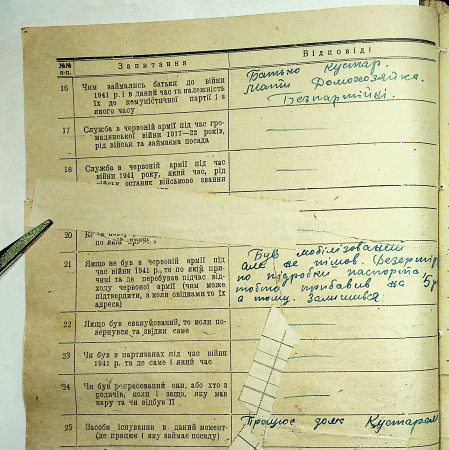 №№ п-п.
Запитання
Відповіді
16
Чим займались батьки до війни
1941 р. і в даний час та належність
їх до комуністичної партії і з
якого часу
Батько кустар.
Мати Домохозяйка.
Безпартійці.
17
Служба в червоній армії під час гро-
мадянської війни 1917—22 років,
рід військ та займаєма посада
18
Служба в червоній армії під час
війни 1941 року, який час, рід
військ останнє військове звання
20
по який
21
Якщо не був в червоній армії під
час війни 1941 р., то по якій при-
чині та де перебував підчас від-
ходу червоної армії (чим може
підтвердити, а коли свідками то їх
адреса)
Був мобілізований
але не пішов.
по підробки паспорта
тобто прибавив на 5 р
а тому. залишився
22
Якщо був евакуйований, то коли по-
вернувся та звідки саме
23
Чи був в партизанах під час війни
1941 р. та де саме і який час
24
Чи був репресований сам, або хто з
родичів, коли і защо, яку мав
кару та чи відбув її
25
Засоби існування в даний момент-
(де працює і яку займає посаду)
Працює дома Кустарем